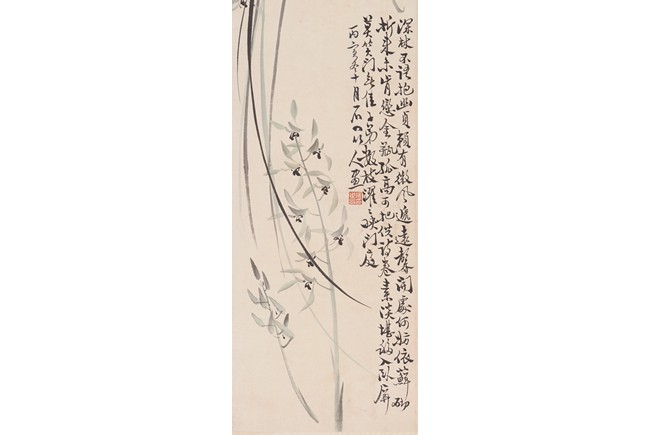 深林不語抱幽貞賴有微風遞遠馨開處何妨依蘚砌
折來未肯戀金瓶孤高可挹供詩卷素淡堪移入臥屏
莫笑門無佳子弟數枝濯〻映門庭
丙冬十月石人畫